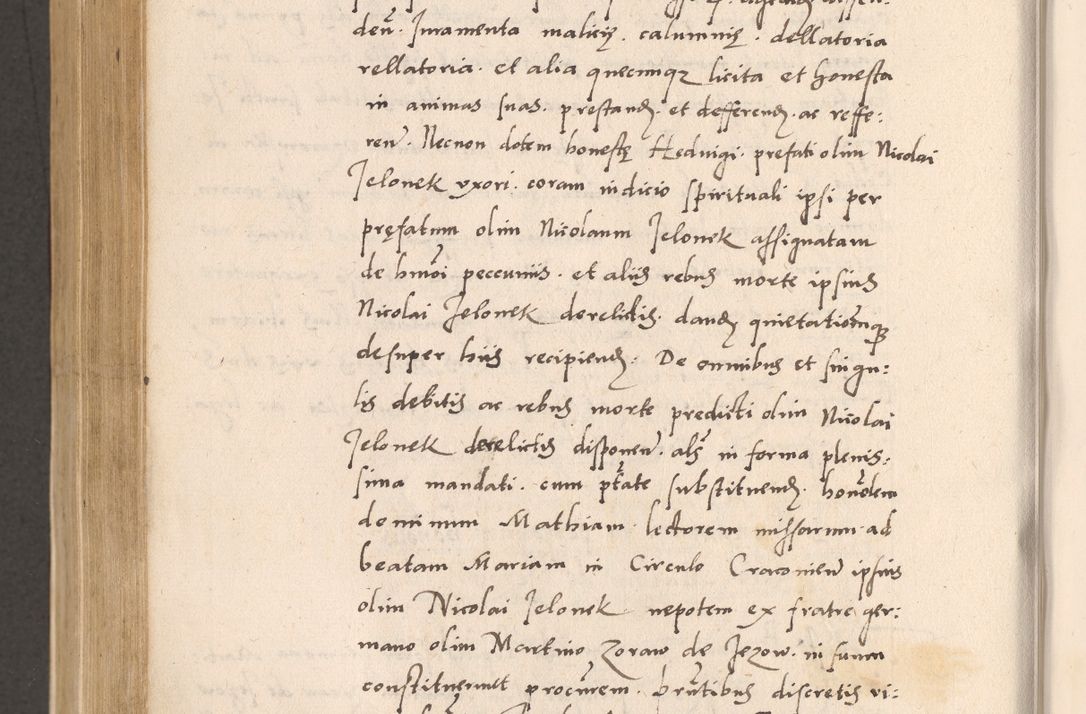 deñ. Juramenta malicię. calumnię. dellatoria
rellatoria. et alia quecunqz licita et honesta
in animas suas. prestandȝ. et defferendȝ. ac reffe:
reñ. Necnon dotem honestę Heduigi. prefati olim Nicolai
Jelonek vxori. coram iudicio spirituali ipsi per
pręfatum olim Nicolaum Jelonek assignatam
de hmõi peccuniis. et aliis rebus morte ipsius
Nicolai Jelonek derelictis. dandȝ quietationemqȝ
desuper hiis recipiendȝ. De omnibus et singu:
lis debitis ac rebus morte predicti olim Nicolai
Jelonek derelictis disponeñ. als in forma plenis:
sima mandati. cum ptãte substituendȝ. honõlem
dominum Mathiam lectorem missarum ad
beatam Mariam in Circulo Cracouieñ ipsius
olim Nicolai Jelonek nepotem ex fratre ger:
mano olim Martino Zoraw de Jezow. in suum
constituerunt procũrem. pñtibus discretis vi: